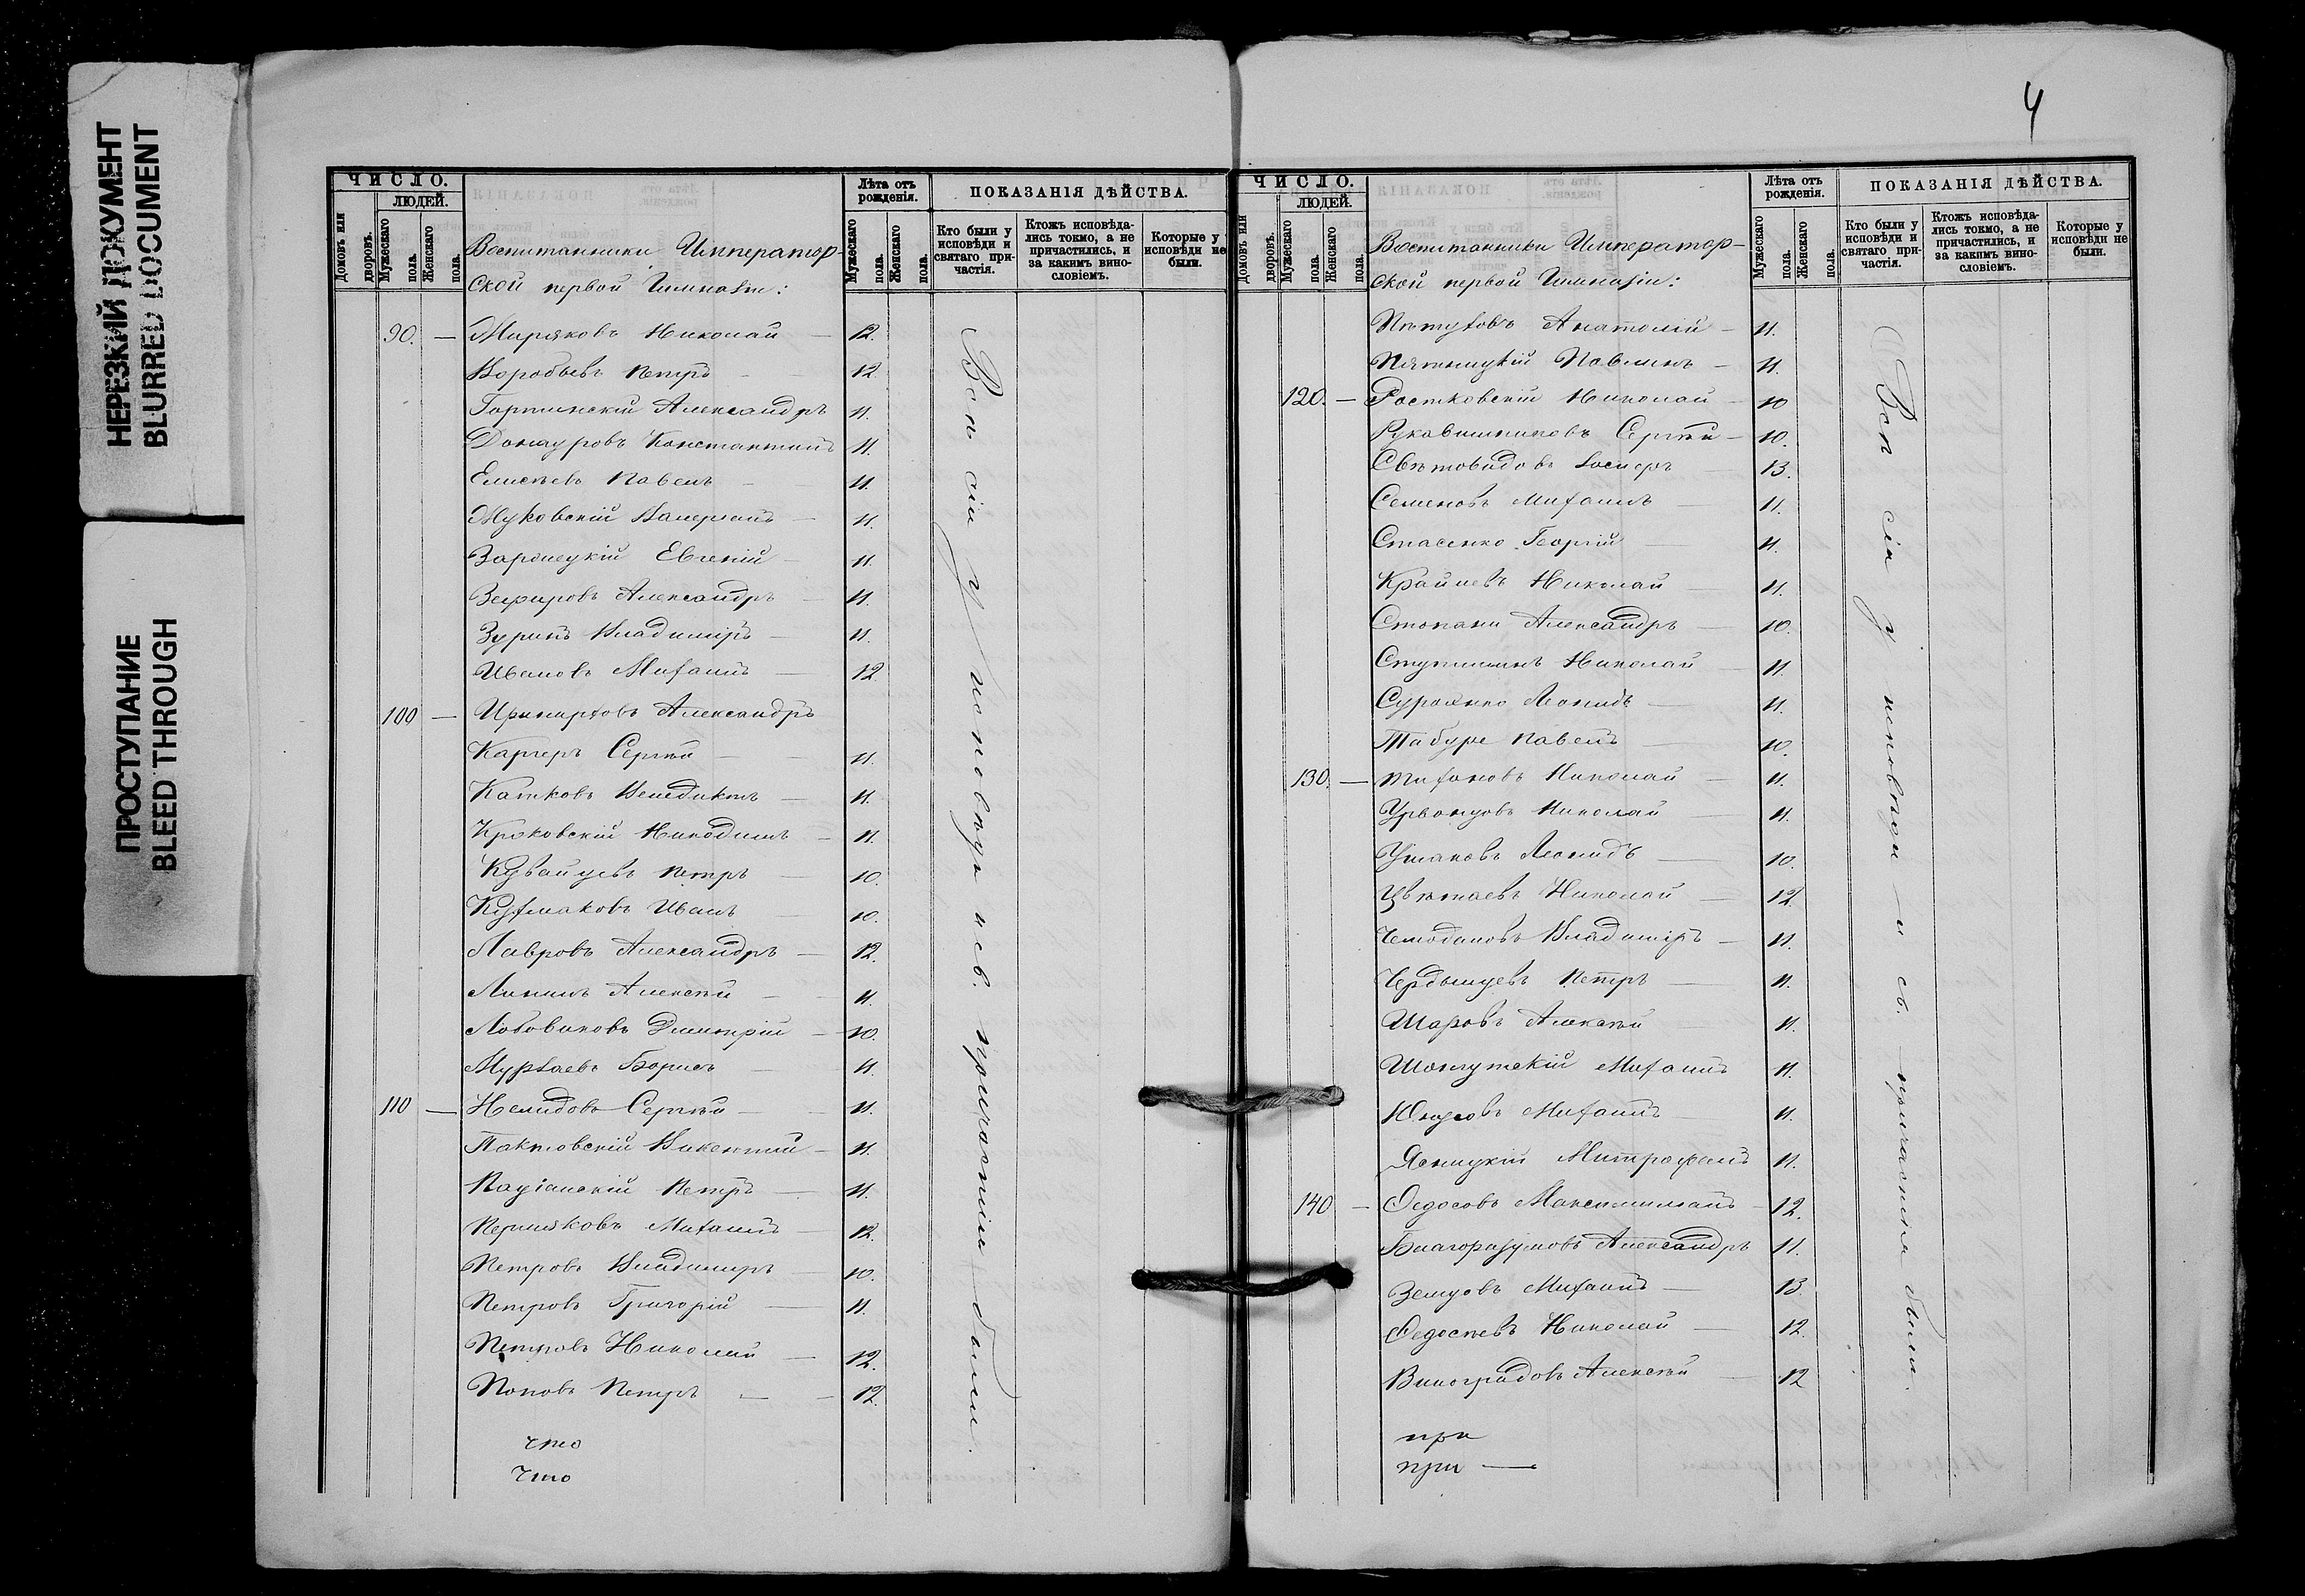 НЕРЕЗКИЙ ДОКУМЕНТ
BLURRED DOCUMENT
ПРОСТУПАНИЕ
BLEED THROUGH
ЧИСЛО.
ЛЮДЕЙ.
Домовъ или дворовъ.
Мужескаго пола.
Женскаго пола.
Воспитанники Император-
ской первой Гимназіи:
Лѣта отъ рожденія.
Мужескаго пола.
Женскаго пола.
ПОКАЗАНІЯ ДѢЙСТВА.
Кто были у исповѣди и святаго причастія.
Ктожъ исповѣда-
лись токмо, а не
причастились, и
за какимъ вино-
словіемъ.
Которые у
исповѣди не
были.
90. — Миряковъ Николай — 12.
Воробьевъ Петръ — 12
Гортинскій Александръ 11.
Донауровъ Константинъ 11.
Елисѣевъ Павелъ — 11.
Жуковскій Валеріанъ — 11.
Евгеній — 11.
Зефировъ Александръ — 11.
Зуринъ Владиміръ — 11.
Ивановъ Михаилъ — 12
100 — Иринарховъ Александръ
Каргеръ Сергѣй — 11.
Катковъ Венедиктъ — 11.
Кроковскій Никодимъ — 11.
Кувайцевъ Петръ — 10.
Кузмаковъ Иванъ — 10.
Лавровъ Александръ — 12.
Лининъ Алексѣй — 11.
Лобовиковъ Димитрій — 10.
Мурзаевъ Борисъ — 11.
110 — Нелидовъ Сергѣй — 11.
Пактовскій Викентій — 11.
Петръ — 11.
Перияковъ Михаилъ — 12.
Петровъ Владимиръ — 10.
Петровъ Григорій — 11.
Петровъ Николай — 12.
Поповъ Петръ — 12.
Всѣ сіи у исповѣди и св. причастія были.
что
что
4
ЧИСЛО.
ЛЮДЕЙ.
Домовъ или дворовъ.
Мужескаго пола.
Женскаго пола.
Воспитанники Император-
ской первой Гимназіи:
Лѣта отъ рожденія.
Мужескаго пола.
Женскаго пола.
ПОКАЗАНІЯ ДѢЙСТВА.
Кто были у
исповѣди и
святаго при-
частія.
Ктожъ исповѣда-
лись токмо, а не
причастились, и
за какимъ вино-
словіемъ.
Которые у
исповѣди не
были.
Пѣтуховъ Анатолій — 11.
Пятницкій Павлинъ — 11.
120. — Ростковскій Николай — 10
Рукавишниковъ Сергѣй — 10.
Свѣтовидовъ — 13.
Семеновъ Михаилъ — 11.
Стасенко Георгій — 11.
Крайневъ Николай — 11.
Стопани Александръ — 10.
Ступишинъ Николай — 11.
Леонидъ — 11.
Табуре Павелъ — 10.
130. — Тихоновъ Николай — 11.
Урванцовъ Николай — 11.
Ушаковъ Леонидъ — 10.
Цвѣтаевъ Николай — 12.
Чемодановъ Владиміръ — 11.
Чердынцевъ Петръ — 11.
Шаровъ Алексѣй 11.
Михаилъ 11.
Юнусовъ Михаилъ — 11.
Ясницкій Митрофанъ 11.
140 — Федосовъ Максимиліанъ — 12.
Благоразумовъ Александръ 11.
Земцовъ Михаилъ — 13
Федосѣевъ Николай — 12.
Виноградовъ Алексѣй — 12
Всѣ сіи у исповѣди и св. причастія были.
при
при —